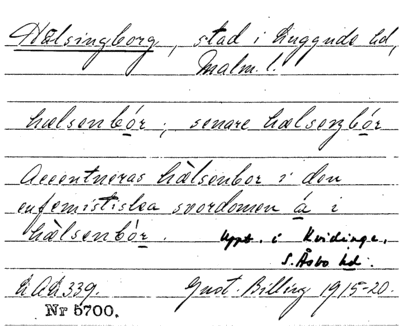 Hälsingborg, stad i Luggude hd,
Malm. l.
hælsenbór; senare hælseŋbór
Accentueras hàlsenbor i den
eufemistiska svordomen á i
hàlsenbór. Uppt. i Kvidinge,
S. Åsbo hd.
L.A.D. 339. Gust. Billing 1915-20.
Nr 5700.